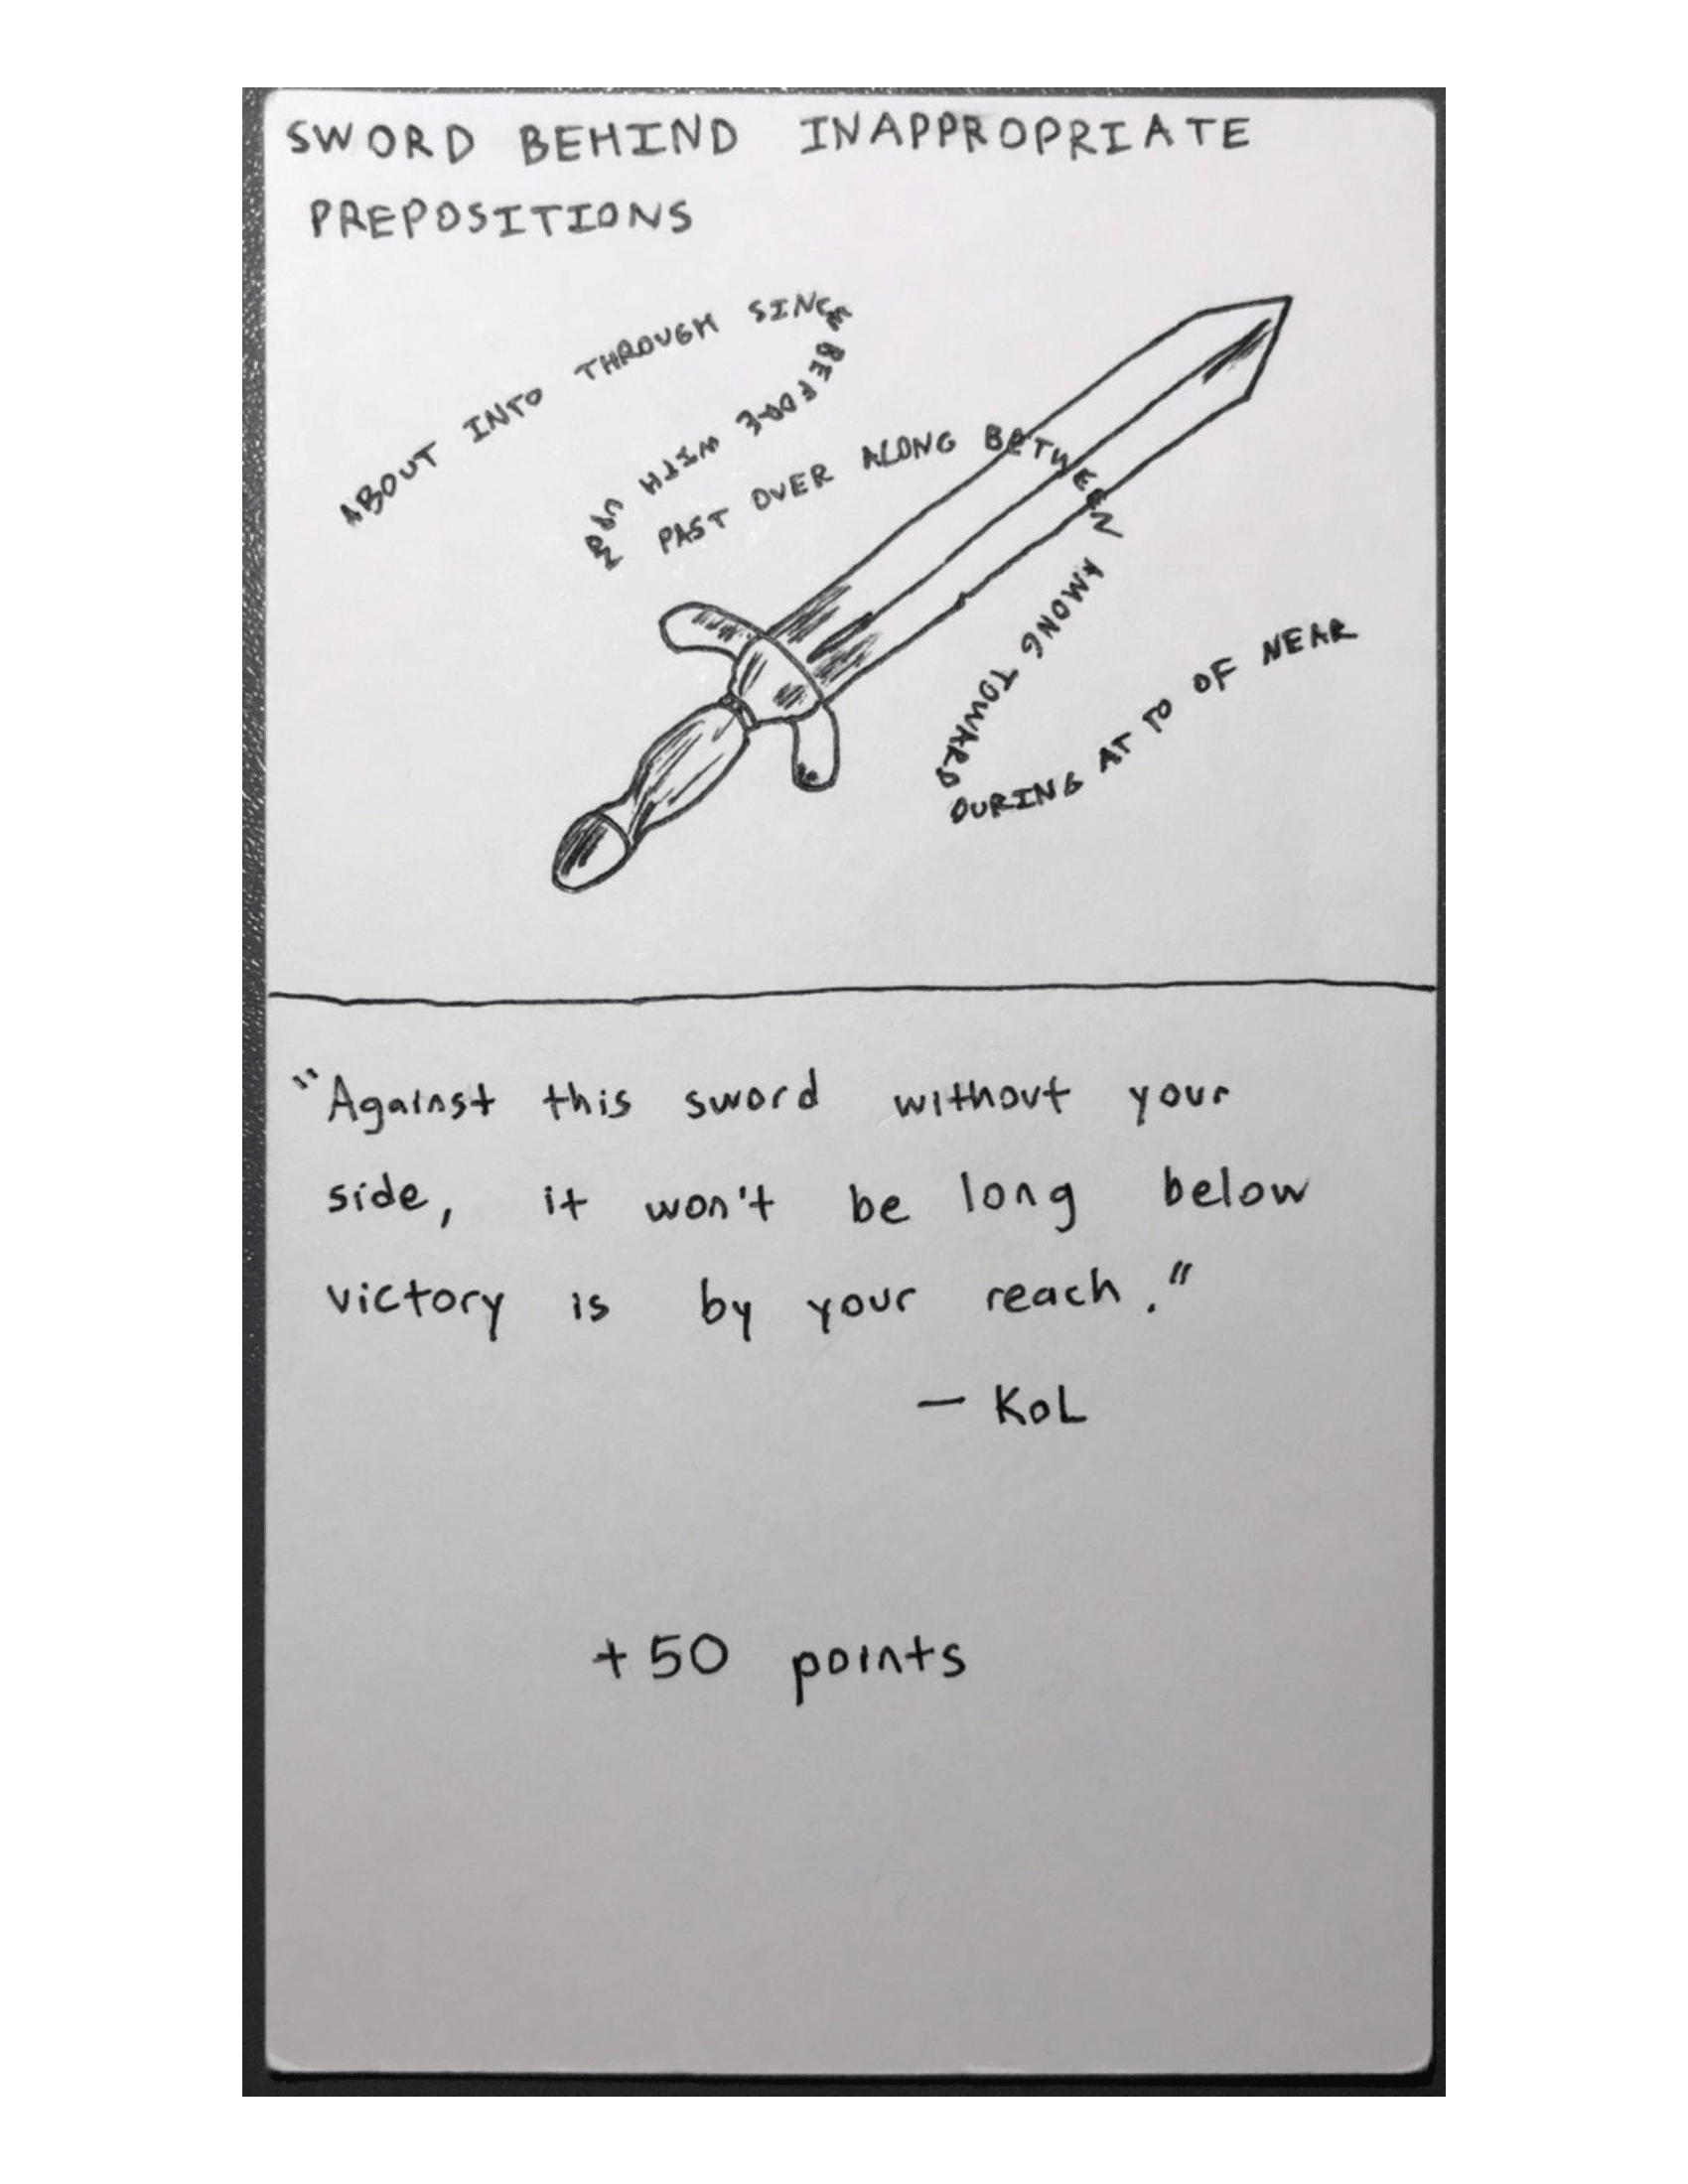 SWORD BEHIND INAPPROPRIATE
PREPOSITIONS
ABOUT INTO THROUGH SINCE
BEFORE WITH UPON
PAST OVER ALONG BETWEEN
AMONG TOWARD
DURING AT TO OF NEAR
"Against this sword without your
side, it won't be long below
victory is by your reach."
— KoL
+50 points